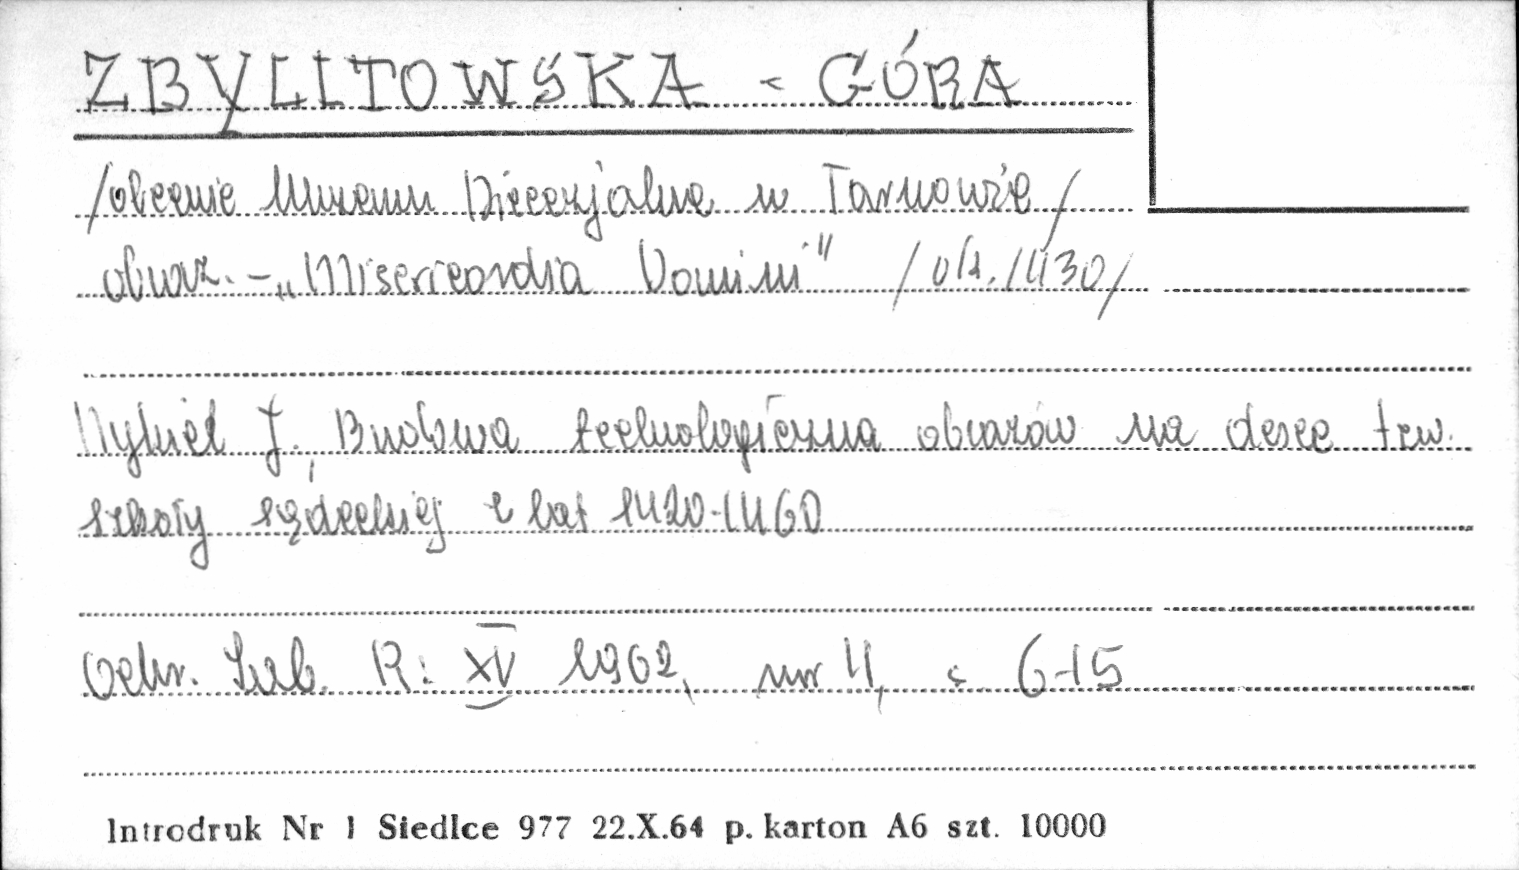 ZBYLITOWSKA - GÓRA
/obecnie Muzeum Diecezjalne w Tarnowie/
obraz. - „Misericordia Domini" /ok. 1430/
Nykiel J., Budowa technologiczna obrazów na desce tzw.
szkoły sądeckiej z lat 1420-1460
Ochr. Zab. R: XV 1962, nr 4, s 6-15
Introdruk Nr 1 Siedlce 977 22.X.64 p. karton A6 szt. 10000